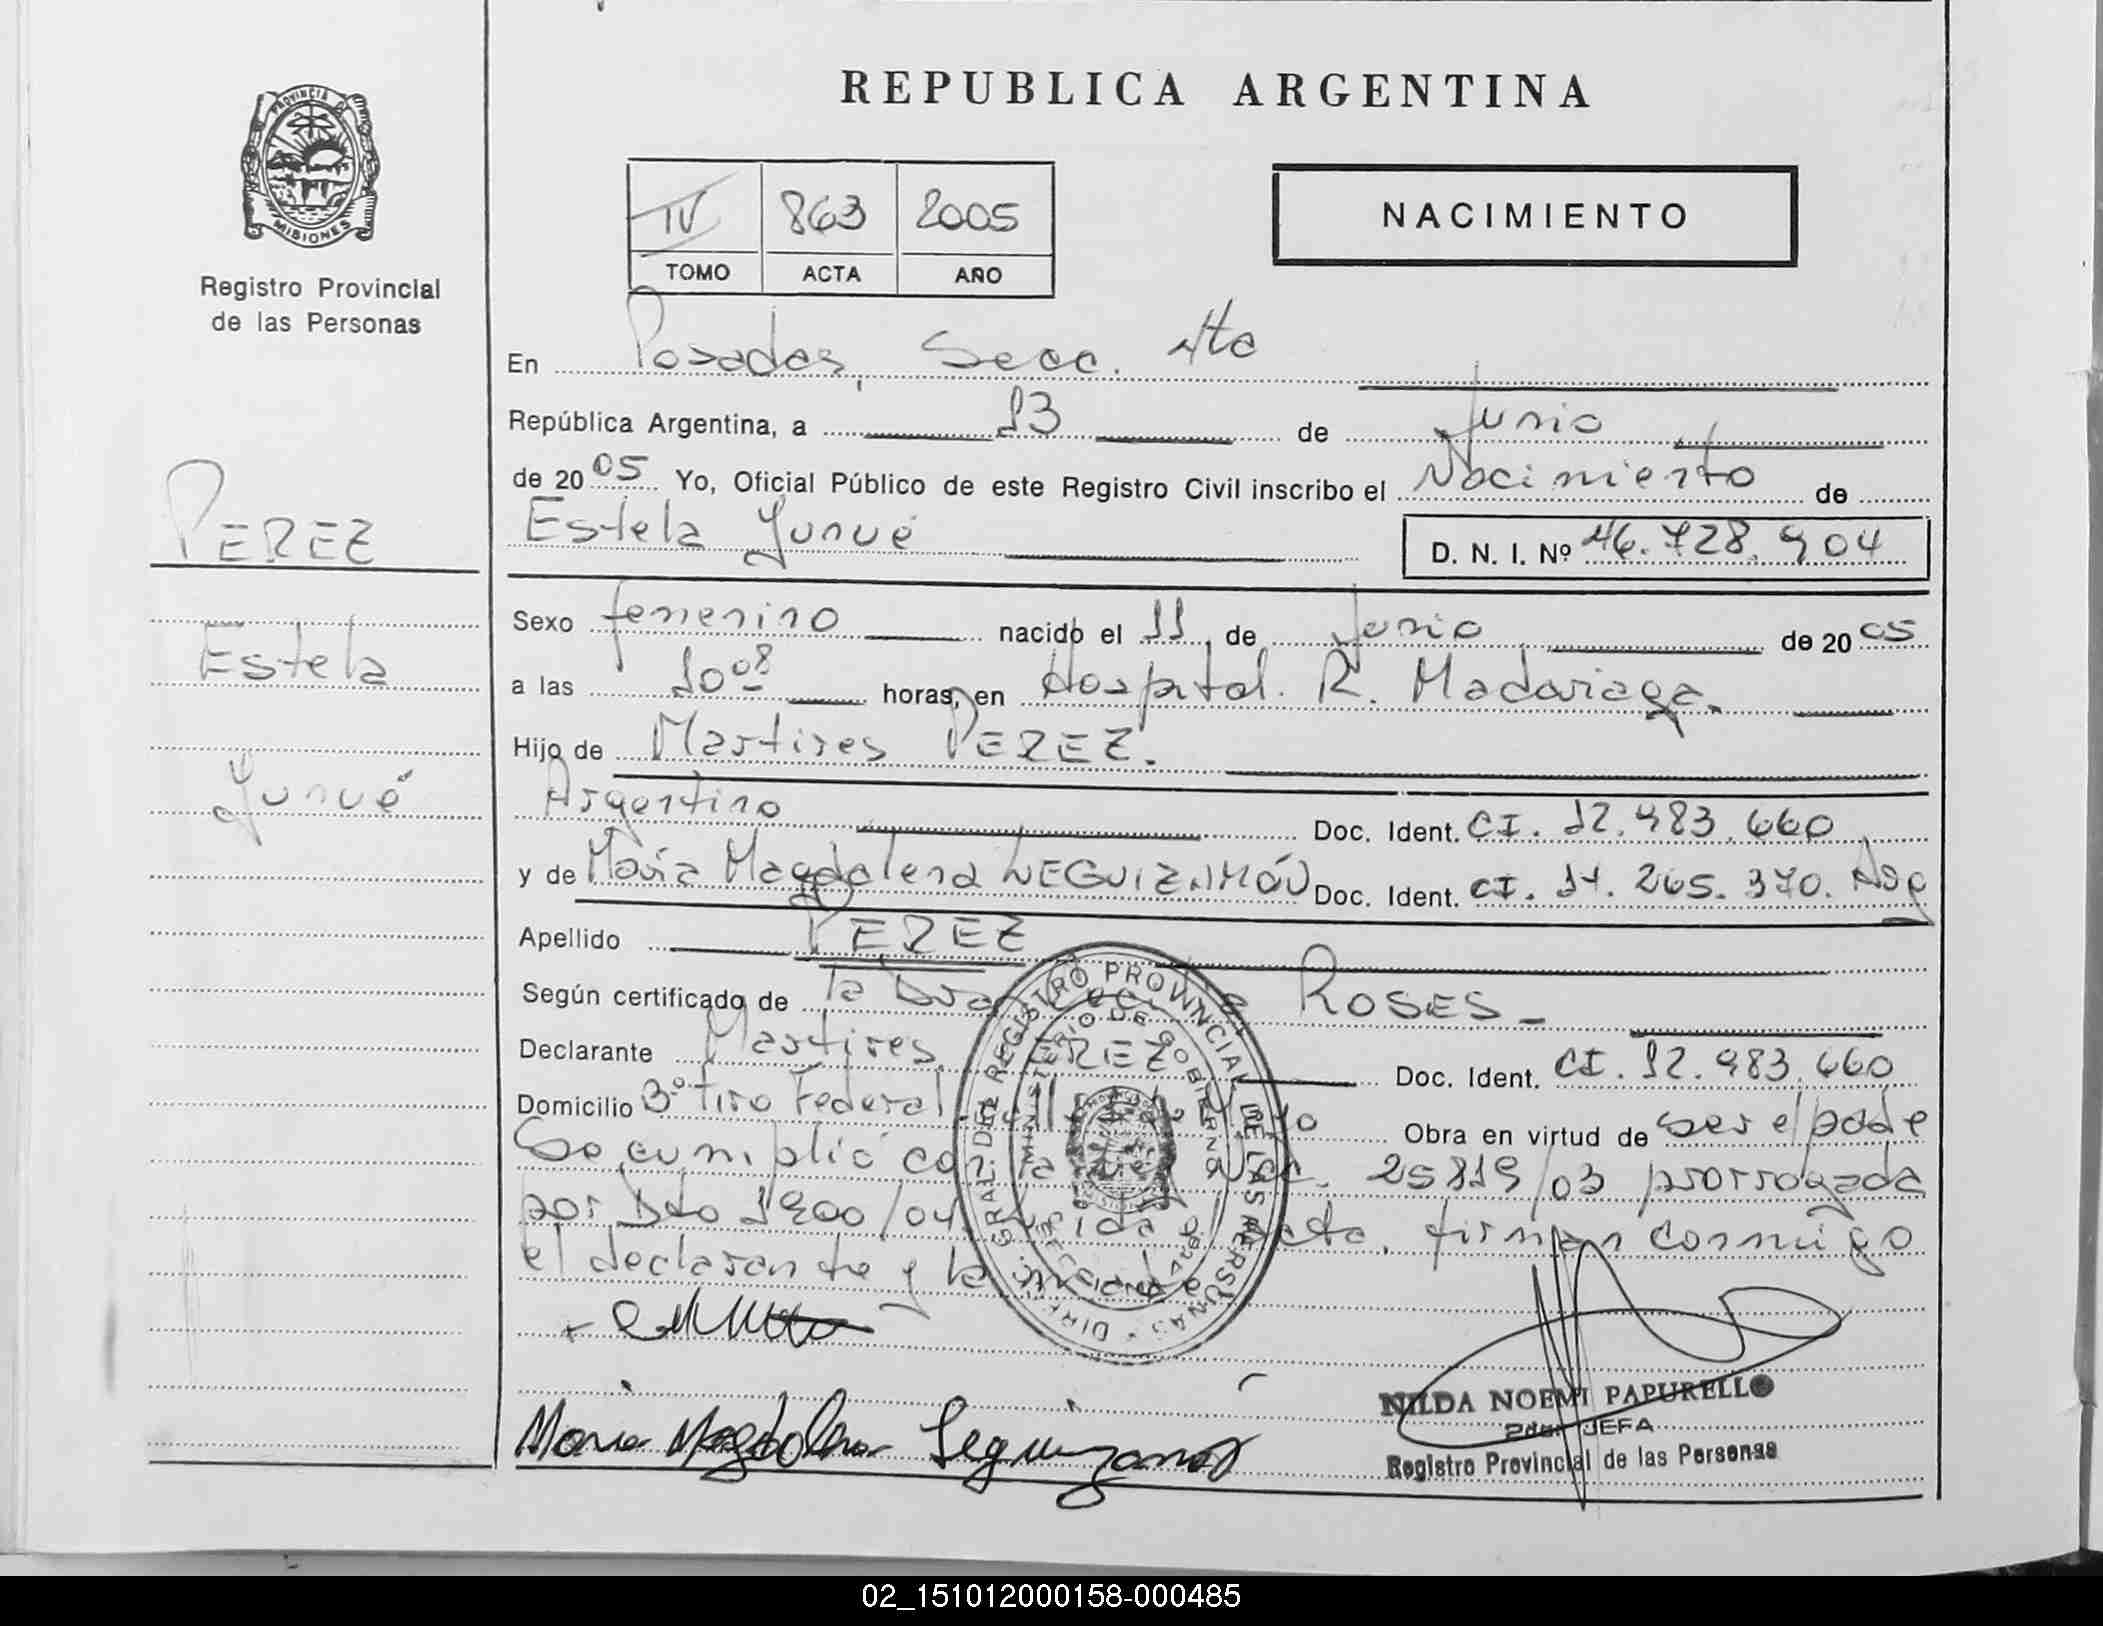 REPUBLICA ARGENTINA
PROVINCIA DE
MISIONES
Registro Provincial
de las Personas
IV 863 2005
TOMO ACTA AÑO
NACIMIENTO
En Posadas, Secc. 4ta
República Argentina, a 13 de Junio
de 2005 Yo, Oficial Público de este Registro Civil inscribo el Nacimiento de
Estela Yunué D. N. I. Nº 46.728.904
PEREZ
Estela
Yunué
Sexo femenino nacido el 11 de Junio de 2005
a las 10 08 horas, en Hospital. R. Madariaga.
Hijo de Martires PEREZ.
Argentino Doc. Ident. CI. 12.483.660
y de María Magdalena LEGUIZAMÓN Doc. Ident. CI. 14.265.370. Arg
Apellido PEREZ
Según certificado de la Dra ROSES
Declarante Martires PEREZ Doc. Ident. CI. 12.483.660
Domicilio 3º Tiro Federal Obra en virtud de ser el padre
Se cumplió con la 25819/03 prorrogada
por Dto 1900/04 acta, firman conmigo
el declarante y la
Maria Magdalena Leguizamón
NILDA NOEMI PAPURELLO
2da. JEFA
Registro Provincial de las Personas
DIREC. GRAL. DEL REGISTRO PROVINCIAL DE LAS PERSONAS
MINISTERIO DE GOBIERNO
02_151012000158-000485